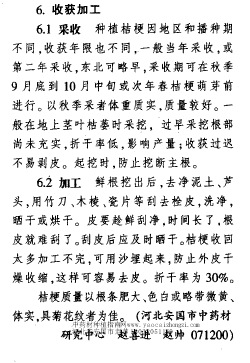 6. 收获加工
6.1 采收 种植桔梗因地区和播种期
不同,收获年限也不同,一般当年采收,或
第二年采收,东北可略早,采收期可在秋季
9 月底到 10 月中旬或次年春桔梗萌芽前
进行。以秋季采者体重质实,质量较好。一
般在地上茎叶枯萎时采挖,过早采挖根部
尚未充实,折干率低,影响产量;收获过迟
不易剥皮。起挖时,防止挖断主根。
6.2 加工 鲜根挖出后,去净泥土、芦
头,用竹刀、木棱、瓷片等刮去栓皮,洗净,
晒干或烘干。皮要趁鲜刮净,时间长了,根
皮就难刮了。刮皮后应及时晒干。桔梗收回
太多加工不完,可用沙埋起来,防止外皮干
燥收缩,这样可容易去皮。折干率为 30%。
桔梗质量以根条肥大、色白或略带微黄、
体实,具菊花纹者为佳。(河北安国市中药材
研究中心 赵喜进 赵帅 071200)